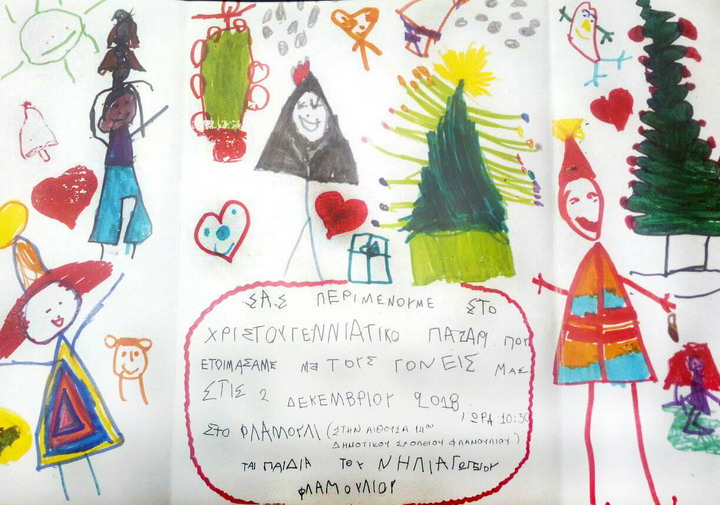 ΣΑΣ ΠΕΡΙΜΕΝΟΥΜΕ ΣΤΟ
ΧΡΙΣΤΟΥΓΕΝΝΙΑΤΙΚΟ ΠΑΖΑΡΙ ΠΟΥ
ΕΤΟΙΜΑΣΑΜΕ ΜΕ ΤΟΥΣ ΓΟΝΕΙΣ ΜΑΣ
ΣΤΙΣ 2 ΔΕΚΕΜΒΡΙΟΥ 2018, ΩΡΑ 10:30
ΣΤΟ ΦΛΑΜΟΥΛΙ (ΣΤΗΝ ΑΙΘΟΥΣΑ
ΔΗΜΟΤΙΚΟΥ ΣΧΟΛΕΙΟΥ ΦΛΑΜΟΥΛΙΟΥ)
ΤΑ ΠΑΙΔΙΑ ΤΟΥ ΝΗΠΙΑΓΩΓΕΙΟΥ
ΦΛΑΜΟΥΛΙΟΥ